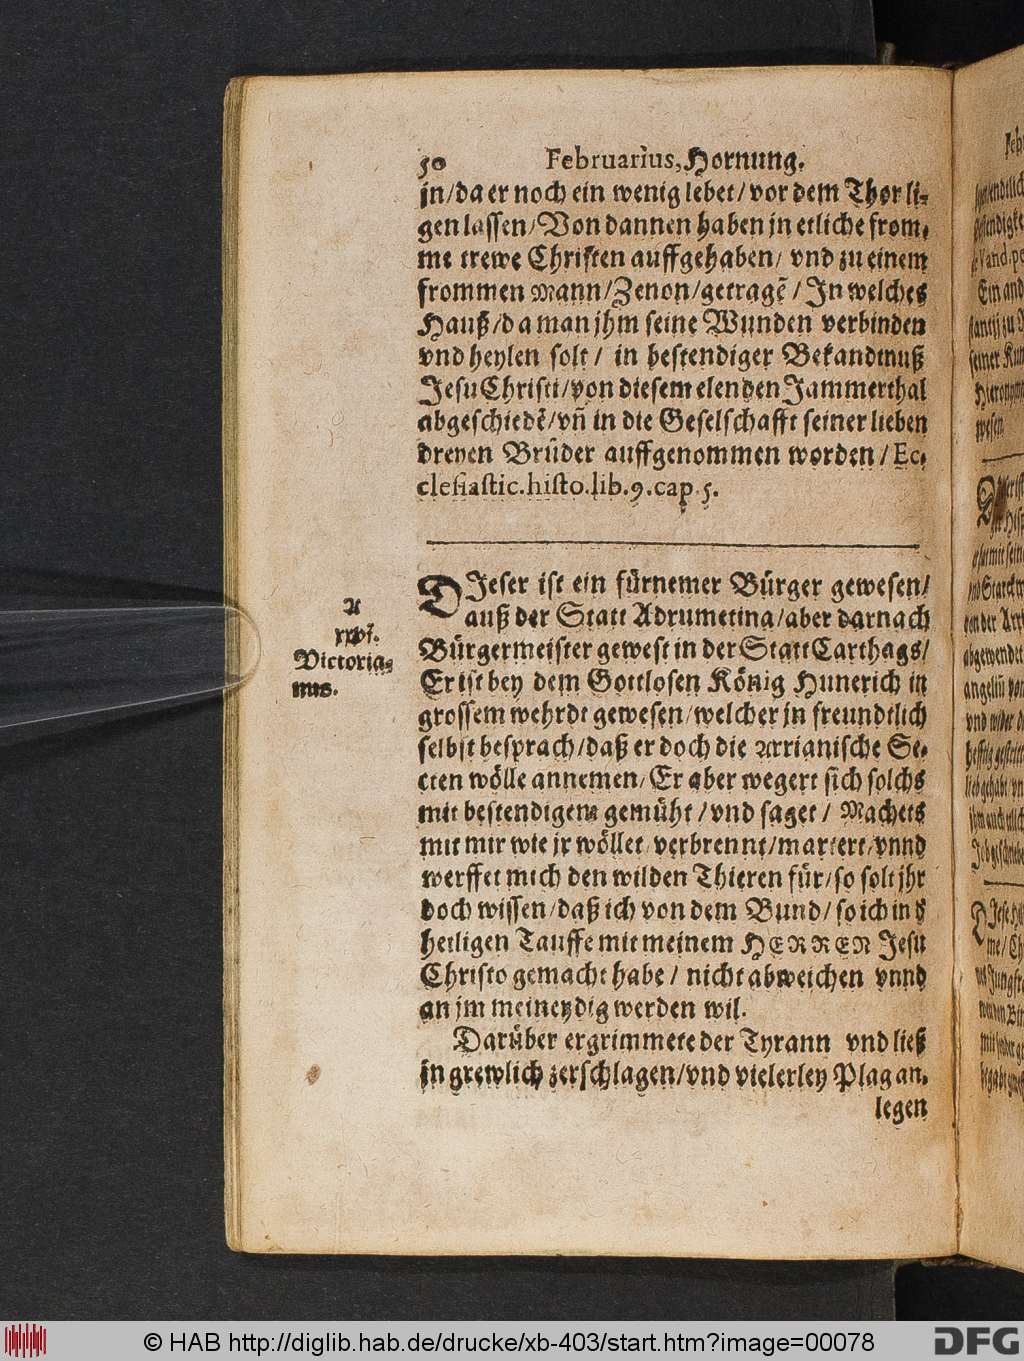 50 Februarius, Hornung.
jn/ da er noch ein wenig lebet/ vor dem Thor li-
gen lassen/ Von dannen haben jn etliche from-
me trewe Christen auffgehaben/ vnd zu einem
frommen Mann/ Zenon/ getragẽ/ In welches
Hauß/ da man jhm seine Wunden verbinden
vnd heylen solt/ in bestendiger Bekandtnuß
Jesu Christi/ von diesem elenden Jammerthal
abgeschiedẽ/ vñ in die Geselschafft seiner lieben
dreyen Brüder auffgenommen worden/ Ec-
clesiastic. histo. lib. 9. cap. 5.
A
xxvj.
Victoria-
nus.
DIeser ist ein fürnemer Bürger gewesen/
auß der Statt Adrumetina/ aber darnach
Bürgermeister gewest in der Statt Carthago/
Er ist bey dem Gottlosen König Hunerich in
grossem wehrdt gewesen/ welcher jn freundtlich
selbst besprach/ daß er doch die Arrianische Se-
cten wölle annemen/ Er aber wegert sich solchs
mit bestendigem gemüht/ vnd saget/ Machets
mit mir wie jr wöllet/ verbrennt/ martert/ vnnd
werffet mich den wilden Thieren für/ so solt jhr
doch wissen/ daß ich von dem Bund/ so ich in d̕
heiligen Tauffe mit meinem HERREN Jesu
Christo gemacht habe/ nicht abweichen vnnd
an jm meineydig werden wil.
Darüber ergrimmete der Tyrann vnd ließ
jn grewlich zerschlagen/ vnd vielerley Plag an-
legen
© HAB http://diglib.hab.de/drucke/xb-403/start.htm?image=00078
DFG